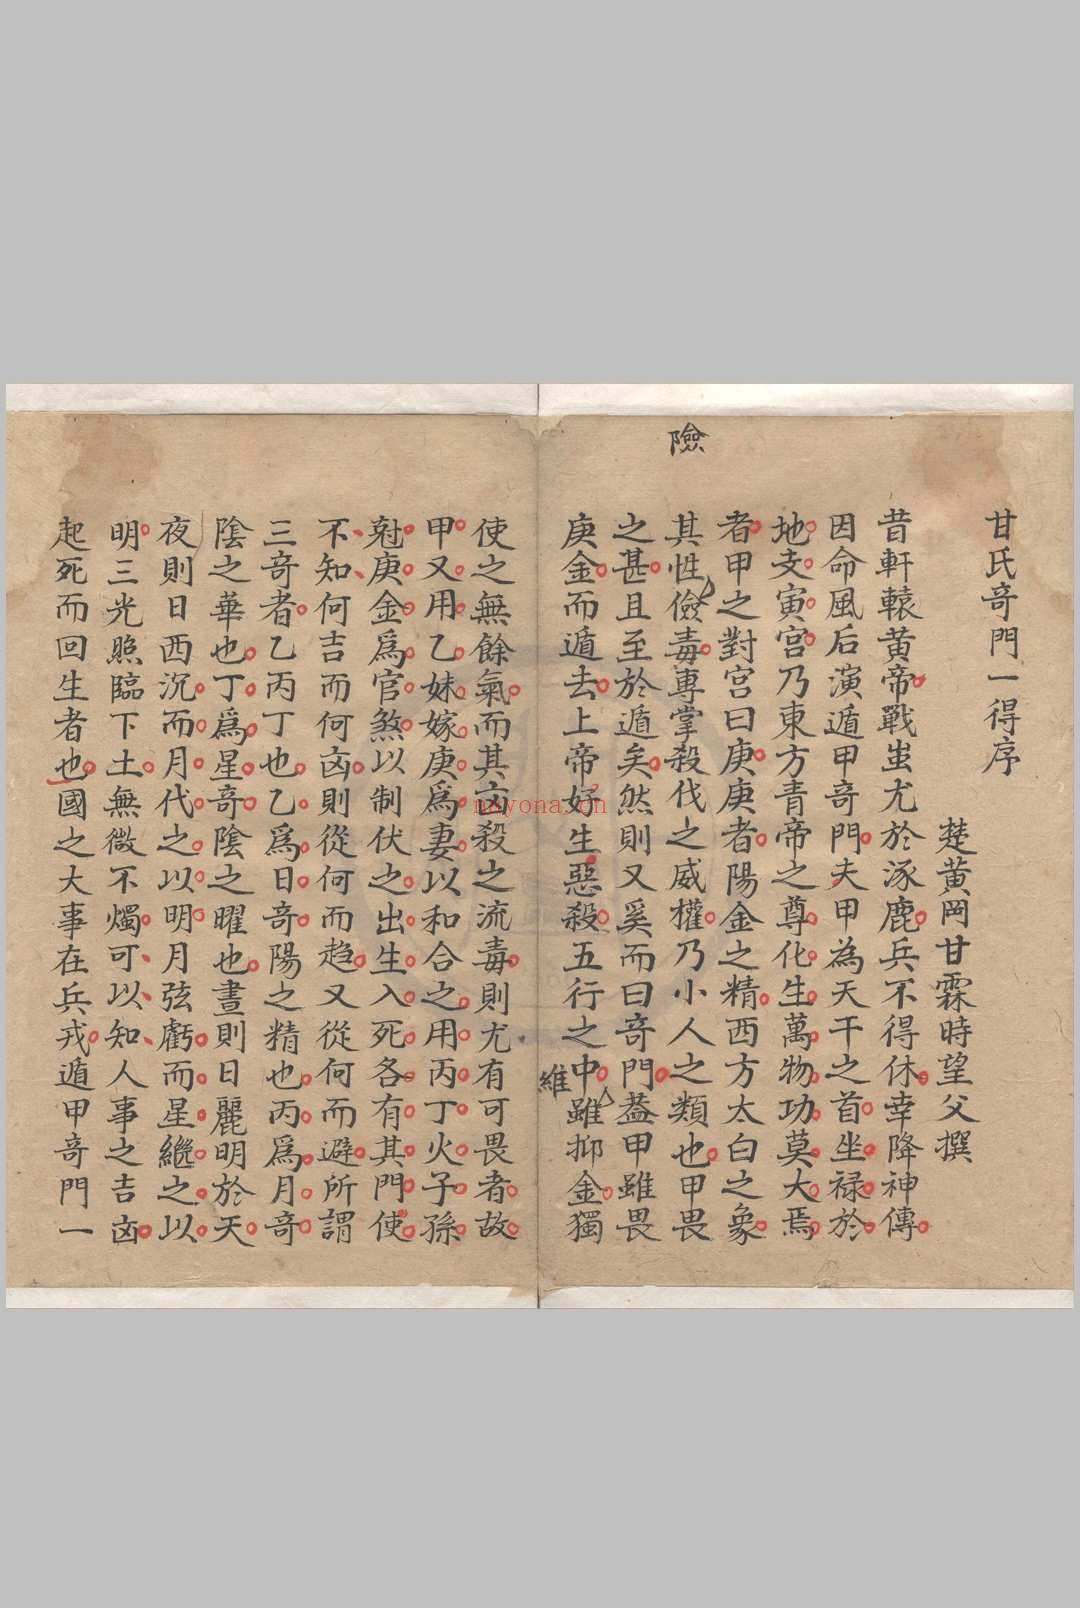 甘氏竒門一得序
楚黄岡甘霖時望父撰
昔軒轅黄帝戰蚩尤於涿鹿兵不得休幸降神傳
因命風后演遁甲竒門夫甲為天干之首坐禄於
地支寅宫乃東方青帝之尊化生萬物功莫大焉
者甲之對宫曰庚庚者陽金之精西方太白之象
險
其性儉毒專掌殺伐之威權乃小人之類也甲畏
之甚且至於遁矣然則又奚而曰竒門葢甲雖畏
庚金而遁去上帝好生惡殺五行之中雖抑金獨
維
使之無餘氣而其凶殺之流毒則尤有可畏者故
甲又用乙妹嫁庚爲妻以和合之用丙丁火子孫
尅庚金爲官煞以制伏之出生入死各有其門使
不知何吉而何凶則從何而趋又從何而避所謂
三竒者乙丙丁也乙爲日竒陽之精也丙爲月竒
陰之華也丁爲星竒陰之曜也晝則日麗明於天
夜則日西沉而月代之以明月弦虧而星繼之以
明三光照臨下土無微不燭可以知人事之吉凶
起死而回生者也國之大事在兵戎遁甲竒門一
nayona.cn